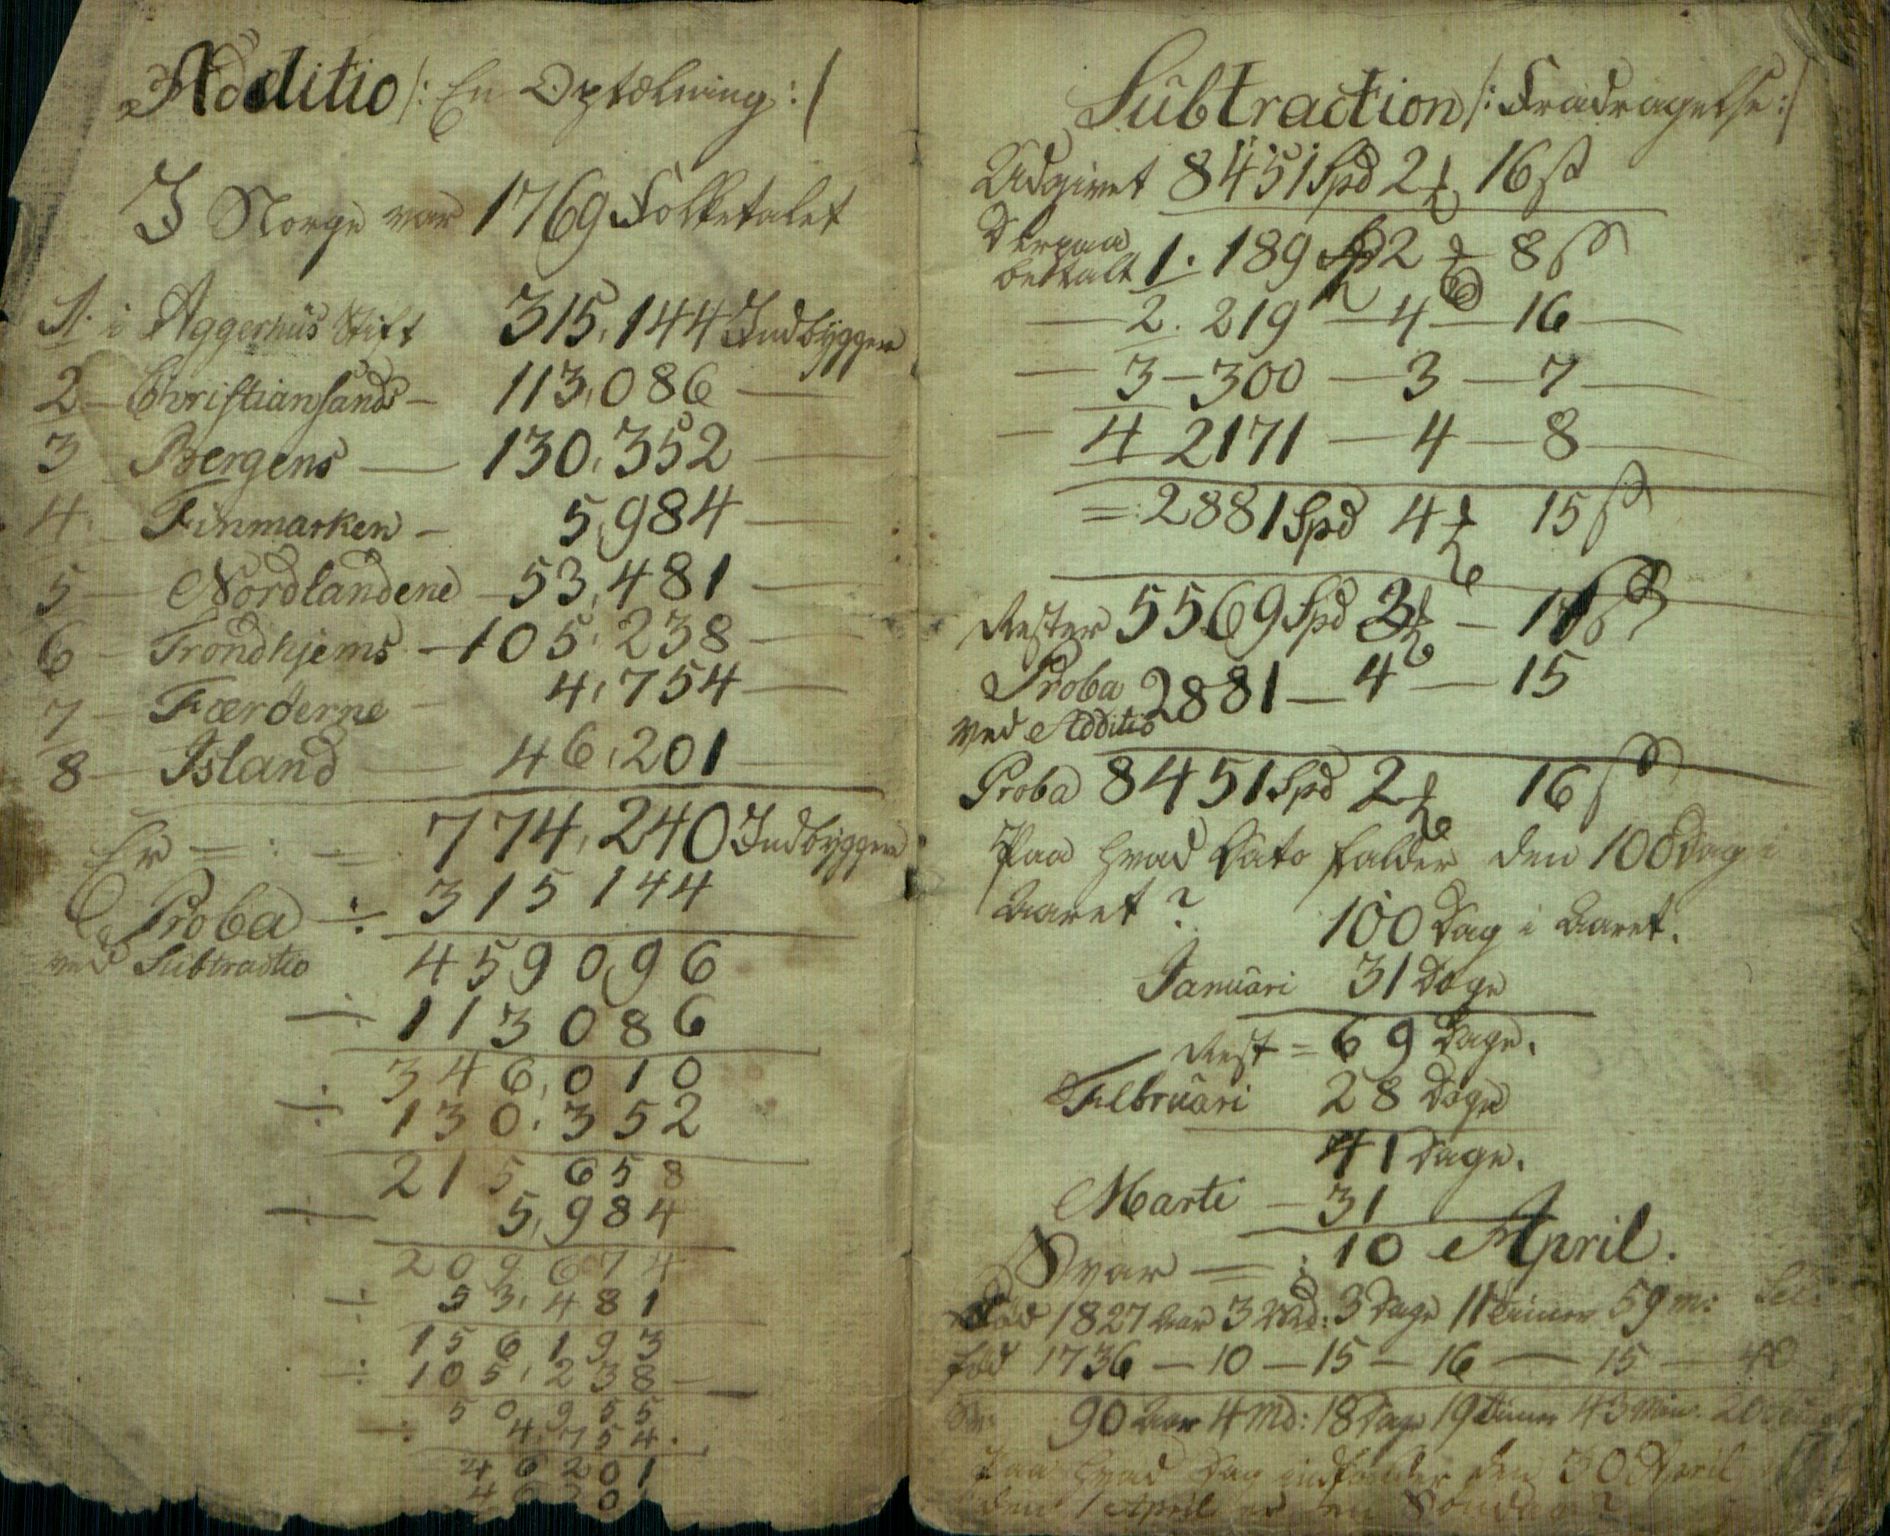 Additio /: En Optælning :/
I Norge var 1769 Folketalet
1. i Aggerhüs Stift 315,144 Indbyggere
2 – Christiansands – 113,086 —
3 Bergens — 130,352 —
4. Finmarken – 5,984 —
5 — Nordlandene – 53,481 —
6 – Trondhjems – 105,238 —
7 – Færöerne – 4,754 —
8 – Island — 46,201 —
Er = : = 774,240 Indbyggere
Proba ÷ 315 144
ved Sübtractio 459 096
÷ 113 086
346,010
÷ 130,352
215 658
÷ 5,984
209 674
÷ 53,481
156 193
÷ 105,238 —
50 955
÷ 4,754.
46 201
46 201
Sübtraction /: Fradragelse :/
Udgivet 8451 Spd 2 ƶ 16 ß
Derpaa
betalt 1. 189 Sp 2 ƶ 8 ß
— 2. 219 — 4 — 16 —
— 3 – 300 — 3 — 7 —
— 4 2171 — 4 — 8 —
= 2881 Spd 4 ƶ 15 ß
Rester 5569 Spd 3 ƶ – 1 ß
Proba 2881 — 4 — 15
ved Additio
Proba 8451 Spd 2 ƶ 16 ß
Paa hvad Dato falder den 100 Dag i
Aaret ? 100 Dag i Aaret.
Januari 31 Dage
Rest = 69 Dage.
Februari 28 Dage
41 Dage.
Marti – 31
Svar = : 10 April.
Död 1827 Aar 3 Md: 3 Dage 11 Timer 59 m: Sec:
föd 1736 — 10 — 15 — 16 — 15 — 40
90 Aar 4 Md: 18 Dage 19 Timer 43 Min. 20
Paa hvad Dag indfalder den 30 April
den 1 April er en Söndag ?